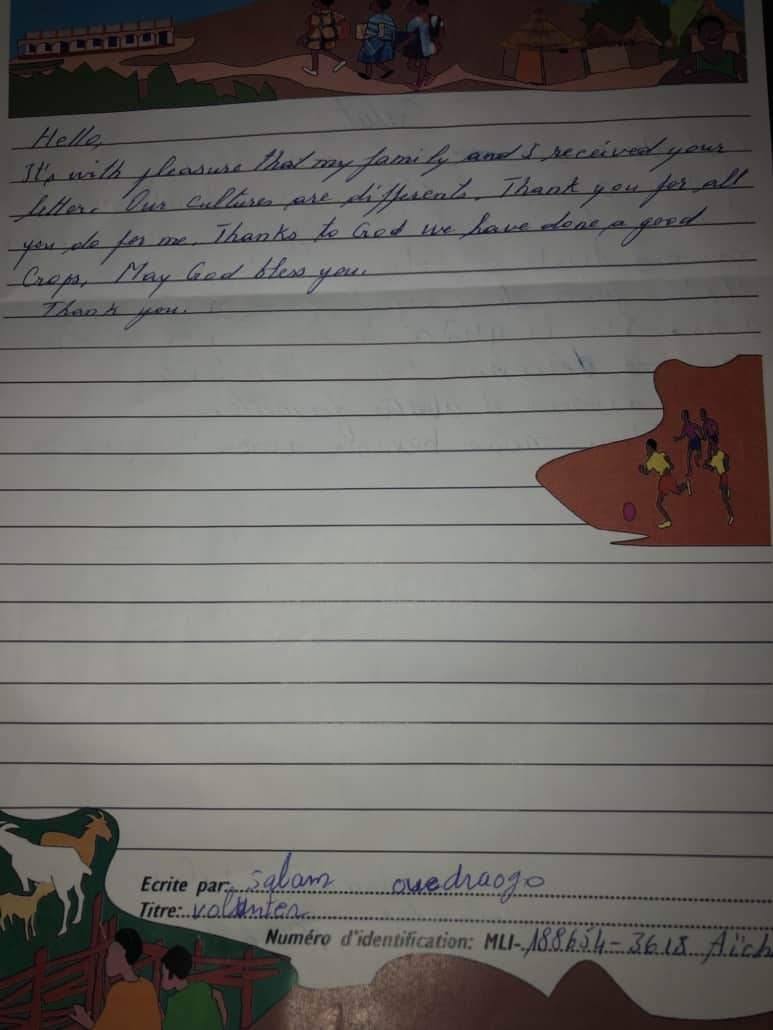 Hello,
It's with pleasure that my family and I received your
letter. Our cultures are differents. Thank you for all
you do for me. Thanks to God we have done a good
Crops. May God bless you.
Thank you.
Ecrite par: salam ouedraogo
Titre: volunter
Numéro d'identification: MLI-188654-3618 Aïch